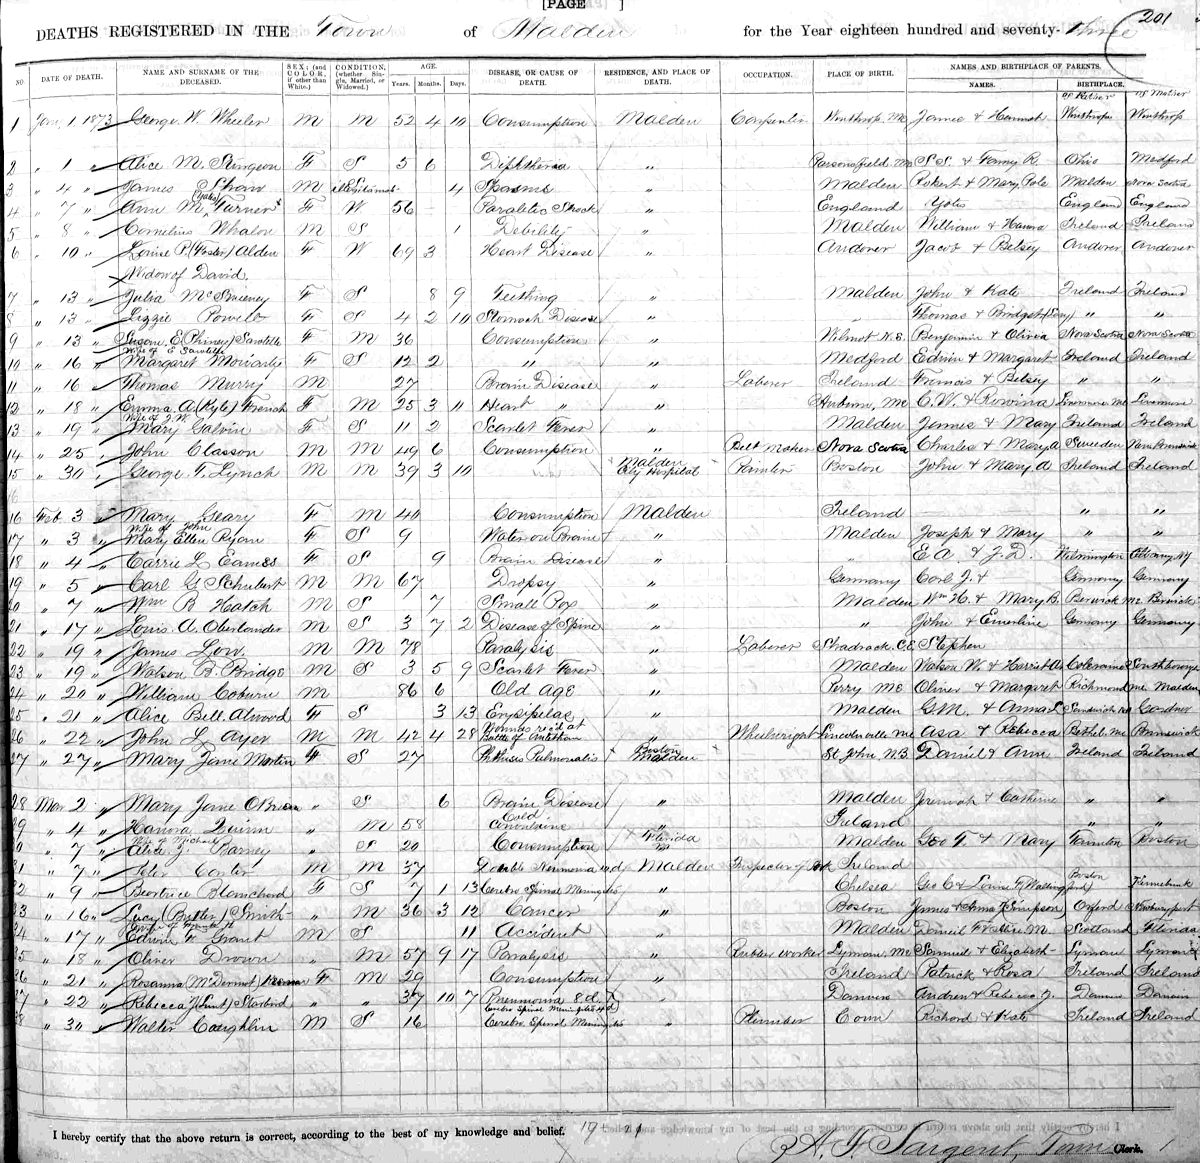 [PAGE ]
201
DEATHS REGISTERED IN THE Town of Malden for the Year eighteen hundred and seventy-three
NO. DATE OF DEATH. NAME AND SURNAME OF THE DECEASED. SEX; (and COLOR, if other than White.) CONDITION, (whether Single, Married, or Widowed.) AGE. Years. Months. Days. DISEASE, OR CAUSE OF DEATH. RESIDENCE, AND PLACE OF DEATH. OCCUPATION. PLACE OF BIRTH. NAMES AND BIRTHPLACE OF PARENTS. NAMES. BIRTHPLACE.
of Father of Mother
1 Jan. 1 1873 George W. Wheeler M M 52 4 10 Consumption Malden Carpenter Winthrop. Me James & Hannah Winthrop Winthrop
2 " 1 " Alice M. Sturgeon F S 3 6 Diphtheria " Parsonsfield Me S. S. & Fanny R. Ohio Medford
3 " 4 " James Shaw M illegitimate 4 Spasms " Malden Robert & Mary Malden Nova Scotia
4 " 7 " Ann M. (Yates) Turner F W 56 Paralitic Shock " England Yates England England
5 " 8 " Cornelius Whalon M S 1 Debility " Malden William & Hanora Ireland Ireland
6 " 10 " Louise P. (Foster) Alden F W 69 3 Heart Disease " Andover Jacob & Betsey Andover Andover
Widow of David
7 " 13 " Julia McSweeney F S 8 9 Teething " Malden John & Kate Ireland Ireland
8 " 13 " Lizzie Powell F S 4 2 10 Stomach Disease " " Thomas & Bridget " "
9 " 13 " Susan E. (Phiney) F M 36 Consumption " Wilmot N.S. Benjamin & Olivia Nova Scotia Nova Scotia
Wife of E
10 " 16 " Margaret Moriarty F S 12 2 " " Medford Edwin & Margaret Ireland Ireland
11 " 16 " Thomas Murry M 27 Brain Disease " Laborer Ireland Francis & Betsey " "
12 " 18 " Emma A. (Kyle) French F M 25 3 11 Heart " " Auburn, Me C. W. & Rowina Livermore Me Livermore
Wife of J. W.
13 " 19 " Mary Galvin F S 11 2 Scarlet Fever " Malden James & Mary Ireland Ireland
14 " 25 " John Classon M M 49 6 Consumption " Belt Maker Nova Scotia Charles & Mary A Sweeden New Brunswick
15 " 30 " George T. Lynch M M 39 3 10 " Malden City Hospital Painter Boston John & Mary A Ireland Ireland
16
16 Feb. 3 " Mary Geary F M 40 Consumption Malden Ireland " "
Wife of John
17 " 3 " Mary Ellen Ryan F S 9 Water on Brain " Malden Joseph & Mary " "
18 " 4 " Carrie L Eames F S 9 Brain Disease " " E A. & J. D. Wilmington Albany NY
19 " 5 " Carl G Schubert M M 67 Dropsy " Germany Carl J. & Germany Germany
20 " 7 " Wm B Hatch M S 7 Small Pox " Malden Wm H. & Mary B. Berwick Me Berwick
21 " 17 " Louis. A. Oberlander M S 3 7 2 Disease of Spine " " John & Emerline Germany Germany
22 " 19 " James Low. M M 78 Paralysis " Laborer Shadrack. C.E. Stephen
23 " 19 " Watson B. Bridge M S 3 5 9 Scarlet Fever " Malden Watson W. & Harriet A. Coleraine
24 " 20 " William Coburn M 86 6 Old Age " Perry Me Oliver & Margaret Richmond Me Malden
25 " 21 " Alice Bell Atwood F S 3 13 Erysipelas " Malden G M. & Anna L Sandwich Gardner
26 " 22 " John L Ayer M M 42 4 28 Wounds rec'd at Battle of Antietam " Wheelwright Lincolnville Me Asa & Rebecca Bethel Me Brunswick
27 " 27 " Mary Jane Martin F S 27 Phthisis Pulmonalis Boston Malden St John N.B. Daniel & Ann Ireland Ireland
28 Mar 2 " Mary Jane O'Brien " S 6 Brain Disease " Malden Jeremiah & Catherine " "
29 " 4 " Hanora Quinn " M 58 Cold " Ireland "
Wife of Michael
30 " 7 " Alice J. Barney " S 20 Consumption Florida Malden Geo T & Mary Taunton Boston
31 " 7 " Peter Conter M M 37 Double Pneumonia Malden Inspector of Ireland
32 " 9 " Beatrice Blanchard F S 7 1 13 Cerebro Spinal Meningitis " Chelsea Geo C & Louise Boston Kennebunk
33 " 16 " Lucy (Butler) Smith " M 36 3 12 Cancer " Boston James & Anna (Simpson) Oxford Newburyport
34 " 17 " Edwin F. Grant M S 11 Accident " Malden Daniel M. Scotland Florida
35 " 18 " Oliver Drown " M 57 9 17 Paralysis " Rubber Worker Lyman, Me Samuel & Elizabeth Lyman Lyman
36 " 21 " Rosanna (McDermot) F M 29 Consumption " Ireland Patrick & Rosa Ireland Ireland
37 " 22 " Rebecca J (Lunt) Starbird " " 37 10 7 Pneumonia 8 d. Cerebro Spinal Meningitis " Danvers Andrew & Rebecca J. Danvers Danvers
38 " 30 " Walter Coughlin M S 16 Cerebro Spinal Meningitis " Plumber Conn Richard & Kate Ireland Ireland
I hereby certify that the above return is correct, according to the best of my knowledge and belief.
19 21
A. J. Sargent, Town Clerk.